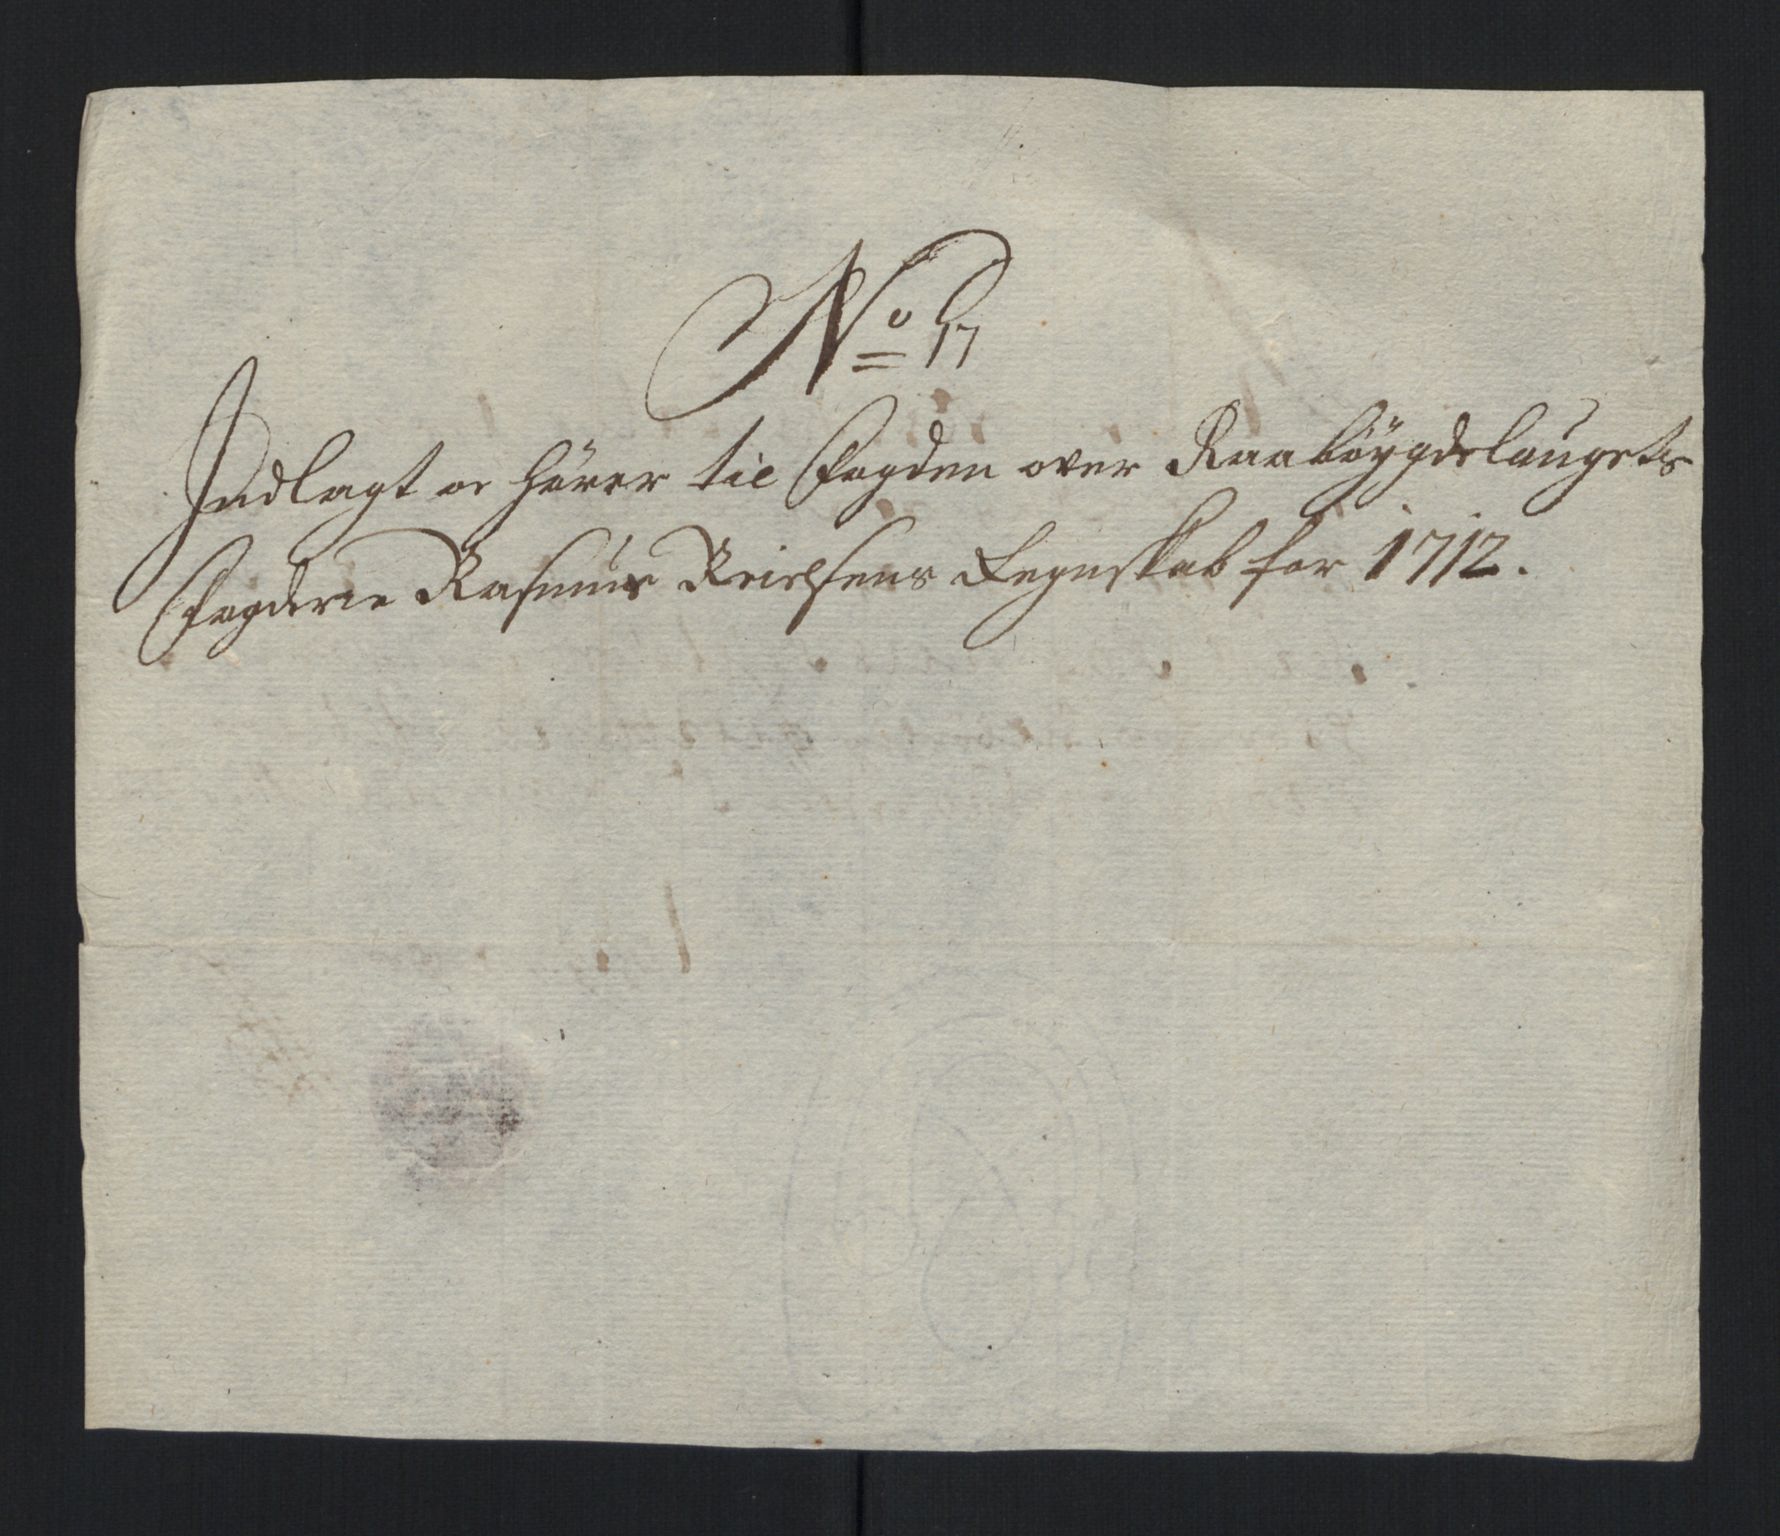 No 17
Indlagt oc hörer til Fogden over Raabÿgdelaugets
Fogderie Rasmus Neielsens Regnskab for 1712.